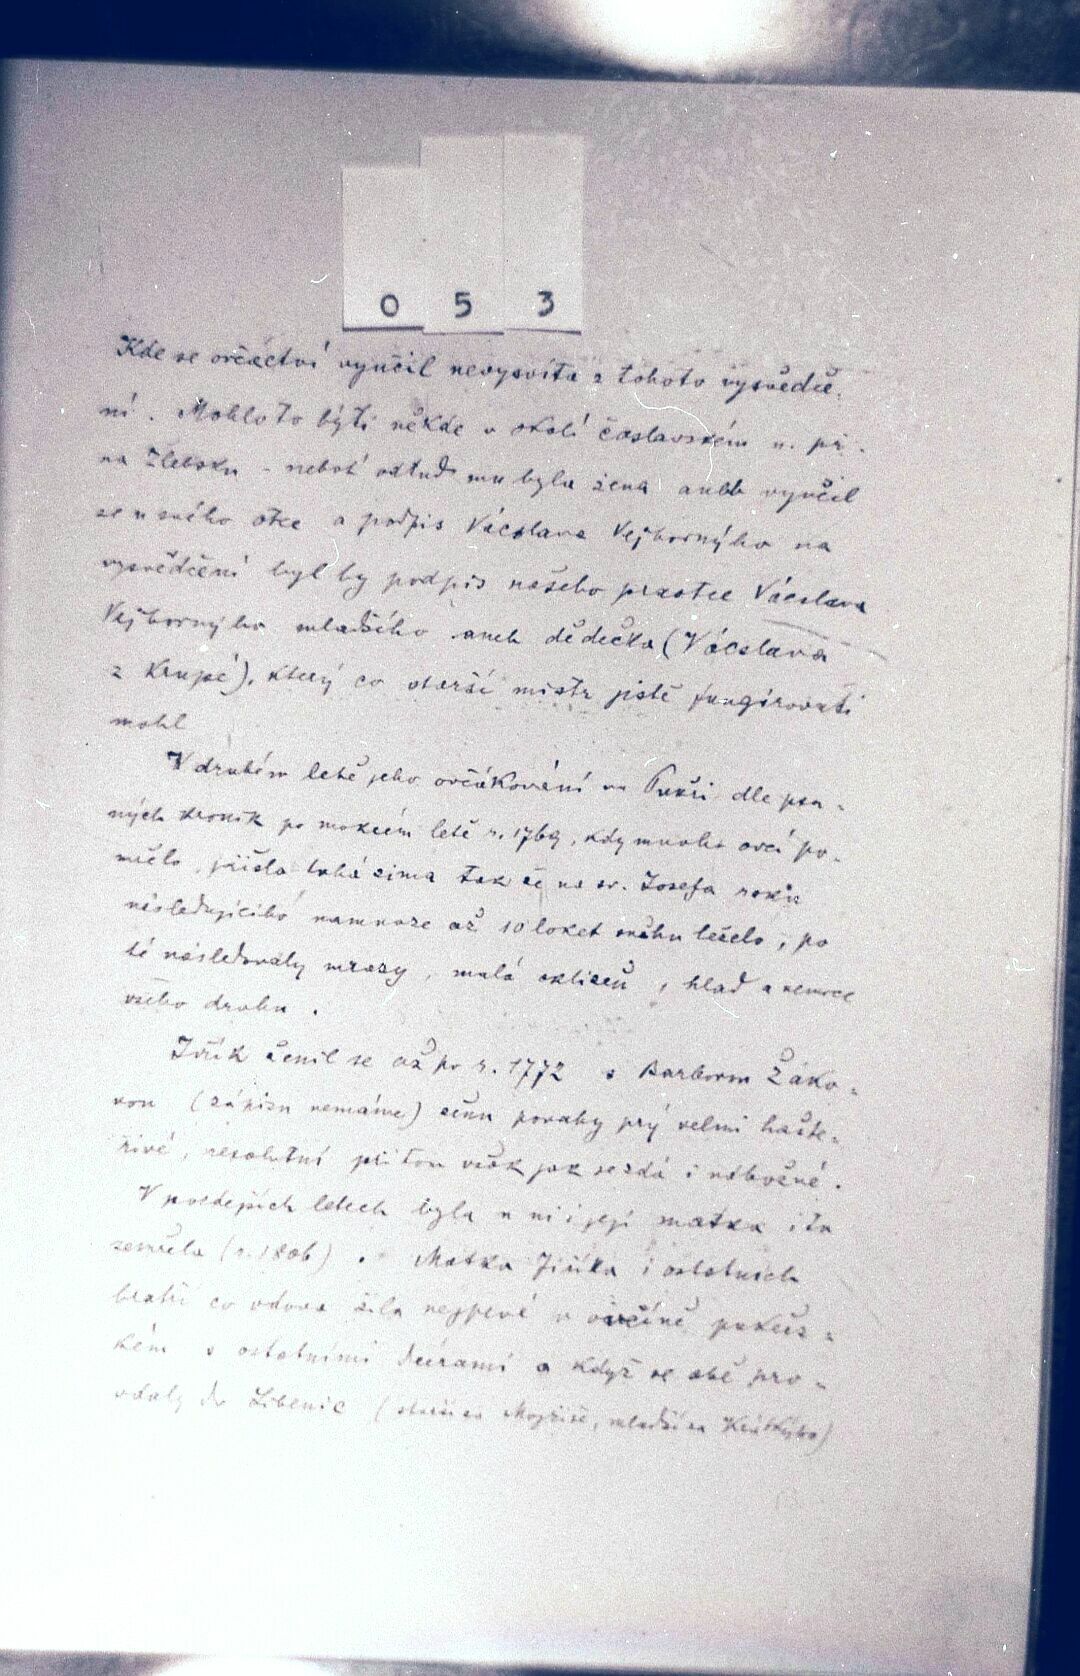 0 5 3
Kde se ovčáctví vyučil nevysvítá z tohoto vysvědče-
ní. Mohlo to býti někde v okolí čáslavském n. př.
na Žlebsku - neboť odtud mu byla žena anebo vyučil
se u svého otce a podpis Václava Vejborného na
vysvědčení byl by podpis našeho praotce Václava
Vejborného mladšího aneb dědečka (Václava
z Krupé), který co starší mistr jistě fungírovati
mohl
V druhém létě jeho ovčákování na Pukši dle psa-
ných kronik po mokrém létě r. 1769, kdy mnoho ovcí po-
mřelo, přišla tuhá zima tak že na sv. Josefa roku
následujícího namnoze až 10 loket sněhu leželo, po
té následovaly mrazy, malá sklizeň, hlad a nemoce
všeho druhu.
Jiřík ženil se až po r. 1772 s Barborou Žáko-
vou (zápisu nemáme) ženu povahy prý velmi hašte-
řivé, resolutní při tom však jak se zdá i nábožné.
V pozdejších letech byla u ní i její matka i tu
zemřela (r. 1806). Matka Jiříka i ostatních
bratří co vdova žila nejprvé v ovčíně pukšs-
kém s ostatními dcerami a když se obě pro-
vdaly do Libenic (starší za Mojžíše, mladší za Krátkýho)